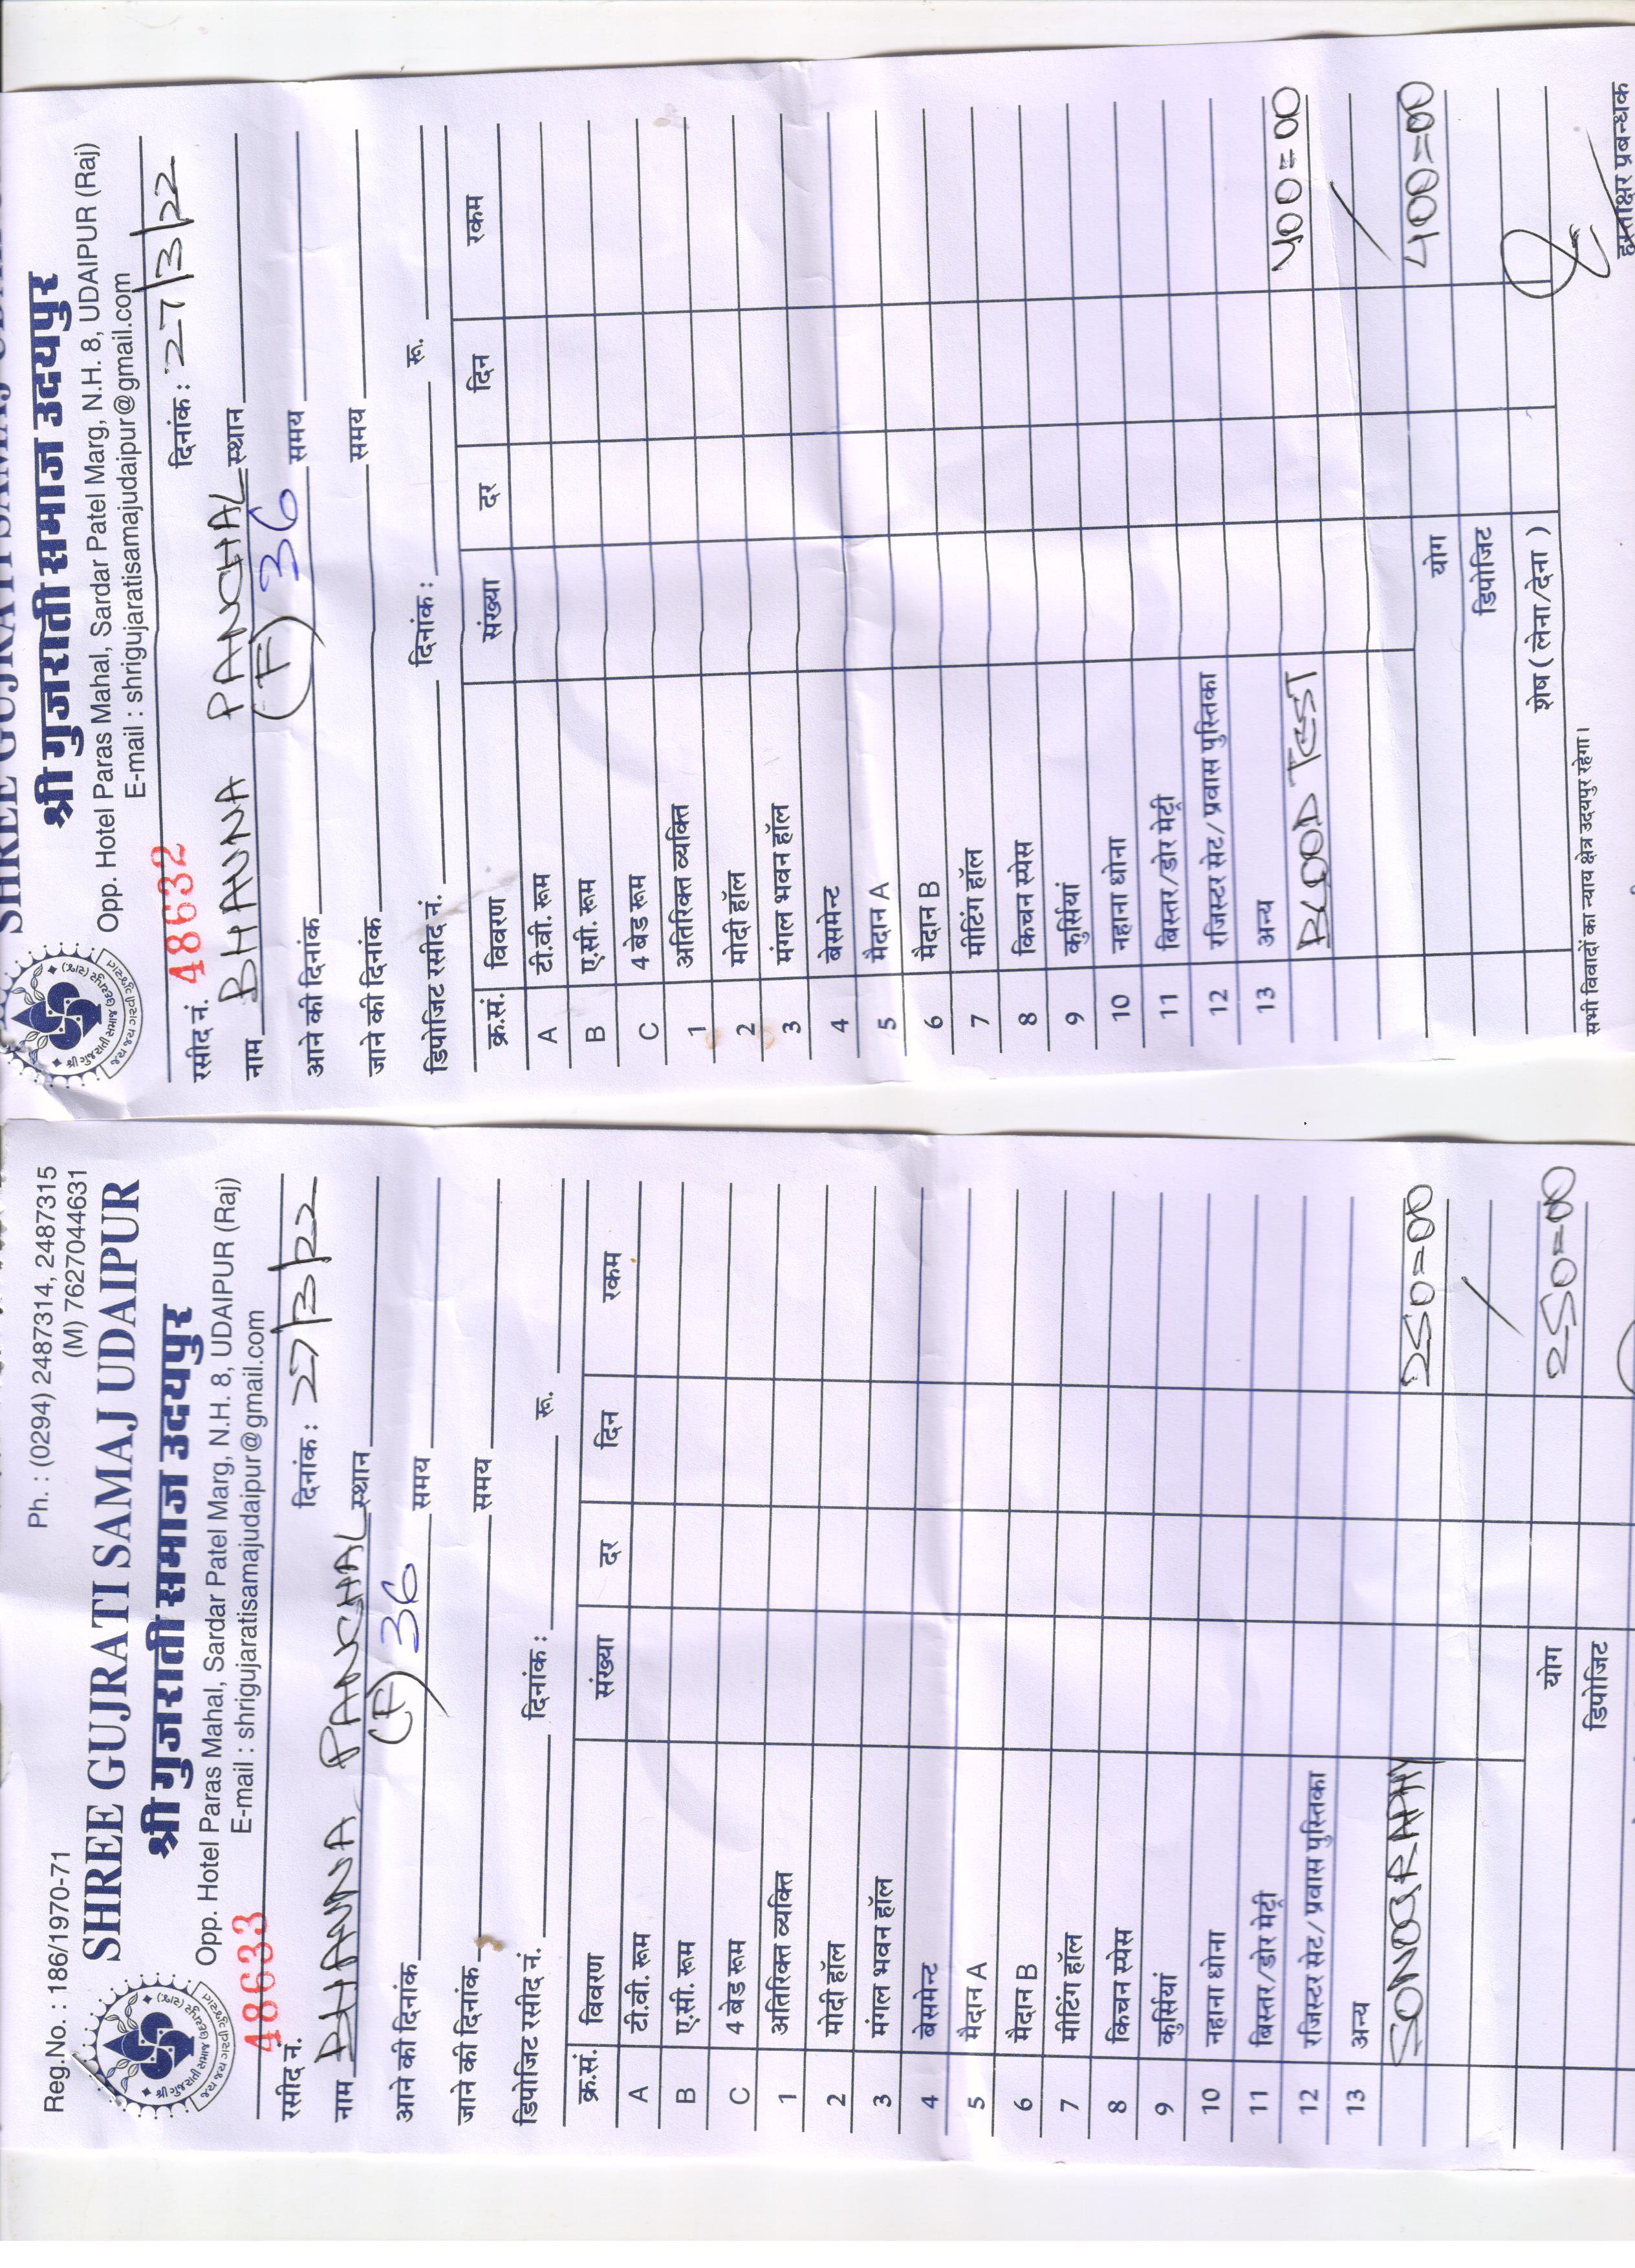 Reg.No. : 186/1970-71
Ph. : (0294) 2487314, 2487315
(M) 7627044631
SHREE GUJRATI SAMAJ UDAIPUR
श्री गुजराती समाज उदयपुर
Opp. Hotel Paras Mahal, Sardar Patel Marg, N.H. 8, UDAIPUR (Raj)
E-mail : shrigujaratisamajudaipur@gmail.com
रसीद नं. 48633 दिनांक : 27/3/22
नाम BHAUNA PANCHAL स्थान
(F) 36
आने की दिनांक समय
जाने की दिनांक समय
डिपोजिट रसीद नं. दिनांक : रू.
क्र.सं. विवरण संख्या दर दिन रकम
A टी.वी. रूम
B ए.सी. रूम
C 4 बेड रूम
1 अतिरिक्त व्यक्ति
2 मोदी हॉल
3 मंगल भवन हॉल
4 बेसमेन्ट
5 मैदान A
6 मैदान B
7 मीटिंग हॉल
8 किचन स्पेस
9 कुर्सियां
10 नहाना धोना
11 बिस्तर/डोर मेट्री
12 रजिस्टर सेट/ प्रवास पुस्तिका
13 अन्य
SONOGRAPHY 250=00
योग 250=00
डिपोजिट
SHREE GUJRATI SAMAJ UDAIPUR
श्री गुजराती समाज उदयपुर
Opp. Hotel Paras Mahal, Sardar Patel Marg, N.H. 8, UDAIPUR (Raj)
E-mail : shrigujaratisamajudaipur@gmail.com
रसीद नं. 48632 दिनांक : 27/3/22
नाम BHAUNA PANCHAL स्थान
(F) 36
आने की दिनांक समय
जाने की दिनांक समय
डिपोजिट रसीद नं. दिनांक : रू.
क्र.सं. विवरण संख्या दर दिन रकम
A टी.वी. रूम
B ए.सी. रूम
C 4 बेड रूम
1 अतिरिक्त व्यक्ति
2 मोदी हॉल
3 मंगल भवन हॉल
4 बेसमेन्ट
5 मैदान A
6 मैदान B
7 मीटिंग हॉल
8 किचन स्पेस
9 कुर्सियां
10 नहाना धोना
11 बिस्तर/डोर मेट्री
12 रजिस्टर सेट/ प्रवास पुस्तिका
13 अन्य
BLOOD TEST 400=00
योग 400=00
डिपोजिट
शेष ( लेना/देना )
सभी विवादों का न्याय क्षेत्र उदयपुर रहेगा।
हस्ताक्षर प्रबन्धक